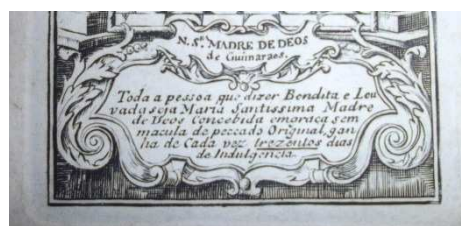 N. Sª. MADRE DE DEOS
de Guimaraes.
Toda a pessoa que dizer Bendita e Lou
vada seia Maria Santissima Madre
de Deos Concebida emgraça sem
macula de peccado Original, gan
ha de Cada vez trezentos dias
de Indulgencia.